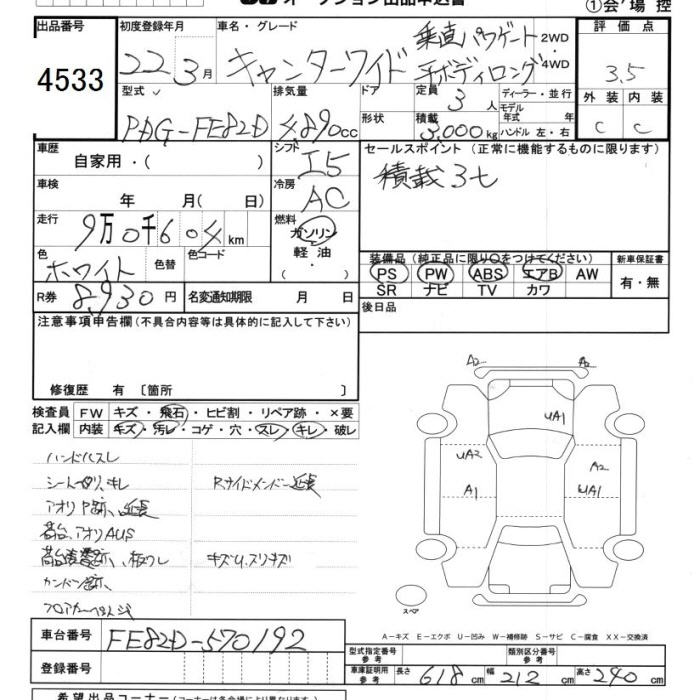 オークション出品申込書
①会場控
出品番号 4533
初度登録年月 22 3月
車名・グレード キャンターワイド 垂直パワゲート 平ボディロング 2WD・4WD
評価点 3.5
外装 C 内装 C
型式 PDG-FE82D
排気量 4,890cc
ドア
形状
定員 3人
積載 3,000kg
ディーラー・並行
モデル年式 年
ハンドル 左・右
車歴 自家用・( )
シフト I5
セールスポイント (正常に機能するものに限ります)
積載3t
車検 年 月(日)
冷房 AC
走行 9万0千604km
燃料 ガソリン・軽油・( )
色 ホワイト 色替 色コード
装備品 (純正品に限り○をつけてください)
PS PW ABS エアB AW
SR ナビ TV カワ
新車保証書 有・無
R券 8,930円 名変通知期限 月 日
後日品
注意事項申告欄 (不具合内容等は具体的に記入して下さい)
修復歴 有 〔箇所 〕
検査員記入欄 FW キズ・飛石・ヒビ割・リペア跡・×要
内装 キズ・汚レ・コゲ・穴・スレ・キレ・破レ
ハンドルスレ
シート キレ
Rサイドメンバー延長
アオリ 延長
荷台、アオリAUS
キズU、スリキズ
A2 A2
UA1
UA2 A2
A1 UA1
スペア
A-キズ E-エクボ U-凹み W-補修跡 S-サビ C-腐食 XX-交換済
車台番号 FE82D-570192
登録番号
型式指定番号 参考 類別区分番号 参考
車庫証明用 参考 長さ 618cm 幅 212cm 高さ 240cm
希望出品コーナー